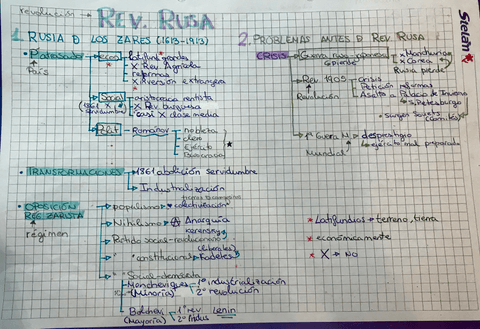 revolución → REV. RUSA
Stelah
1. RUSIA D LOS ZARES (1613-1913)
• Patrasado
País
Econ
latifundios grandes
X Rev Agrícola
reformas
X inversión extranjera
Social
(1861 X
servidumbre)
aristocracia rentista
X Rev burguesa
casi X clase media
Polít
Romanov
nobleza
clero
Ejército
Burocracia
• TRANSFORMACIONES → 1861 abolición servidumbre
→ Industrialización
• OPOSICIÓN
REG. ZARISTA
régimen
tierras a campesinos
→ populismo → "colectivización"
→ Nihilismo → Ⓐ Anarquía
Kerensky
→ Partido social-revolucionario
(liberales)
→ " constitucional → Kadetes
→ " Social-demócrata
Mencheviques
(Minoría)
1º industrialización
2º revolución
Bolchev
(Mayoría)
1º rev
2º indus
Lenin
2. PROBLEMAS ANTES D REV RUSA
CRISIS
Guerra ruso-japonesa
grande
x Manchuria
x Corea
Rusia pierde
Rev 1905
Revolución
crisis
Petición reformas
Asalto a Palacio de Invierno
S. Petesburgo
• Surgen Soviets
(comités)
1ª Guerra M
Mundial
desprestigio
ejército mal preparado
* Latifundios → terreno, tierra
* económicamente
* X → NO